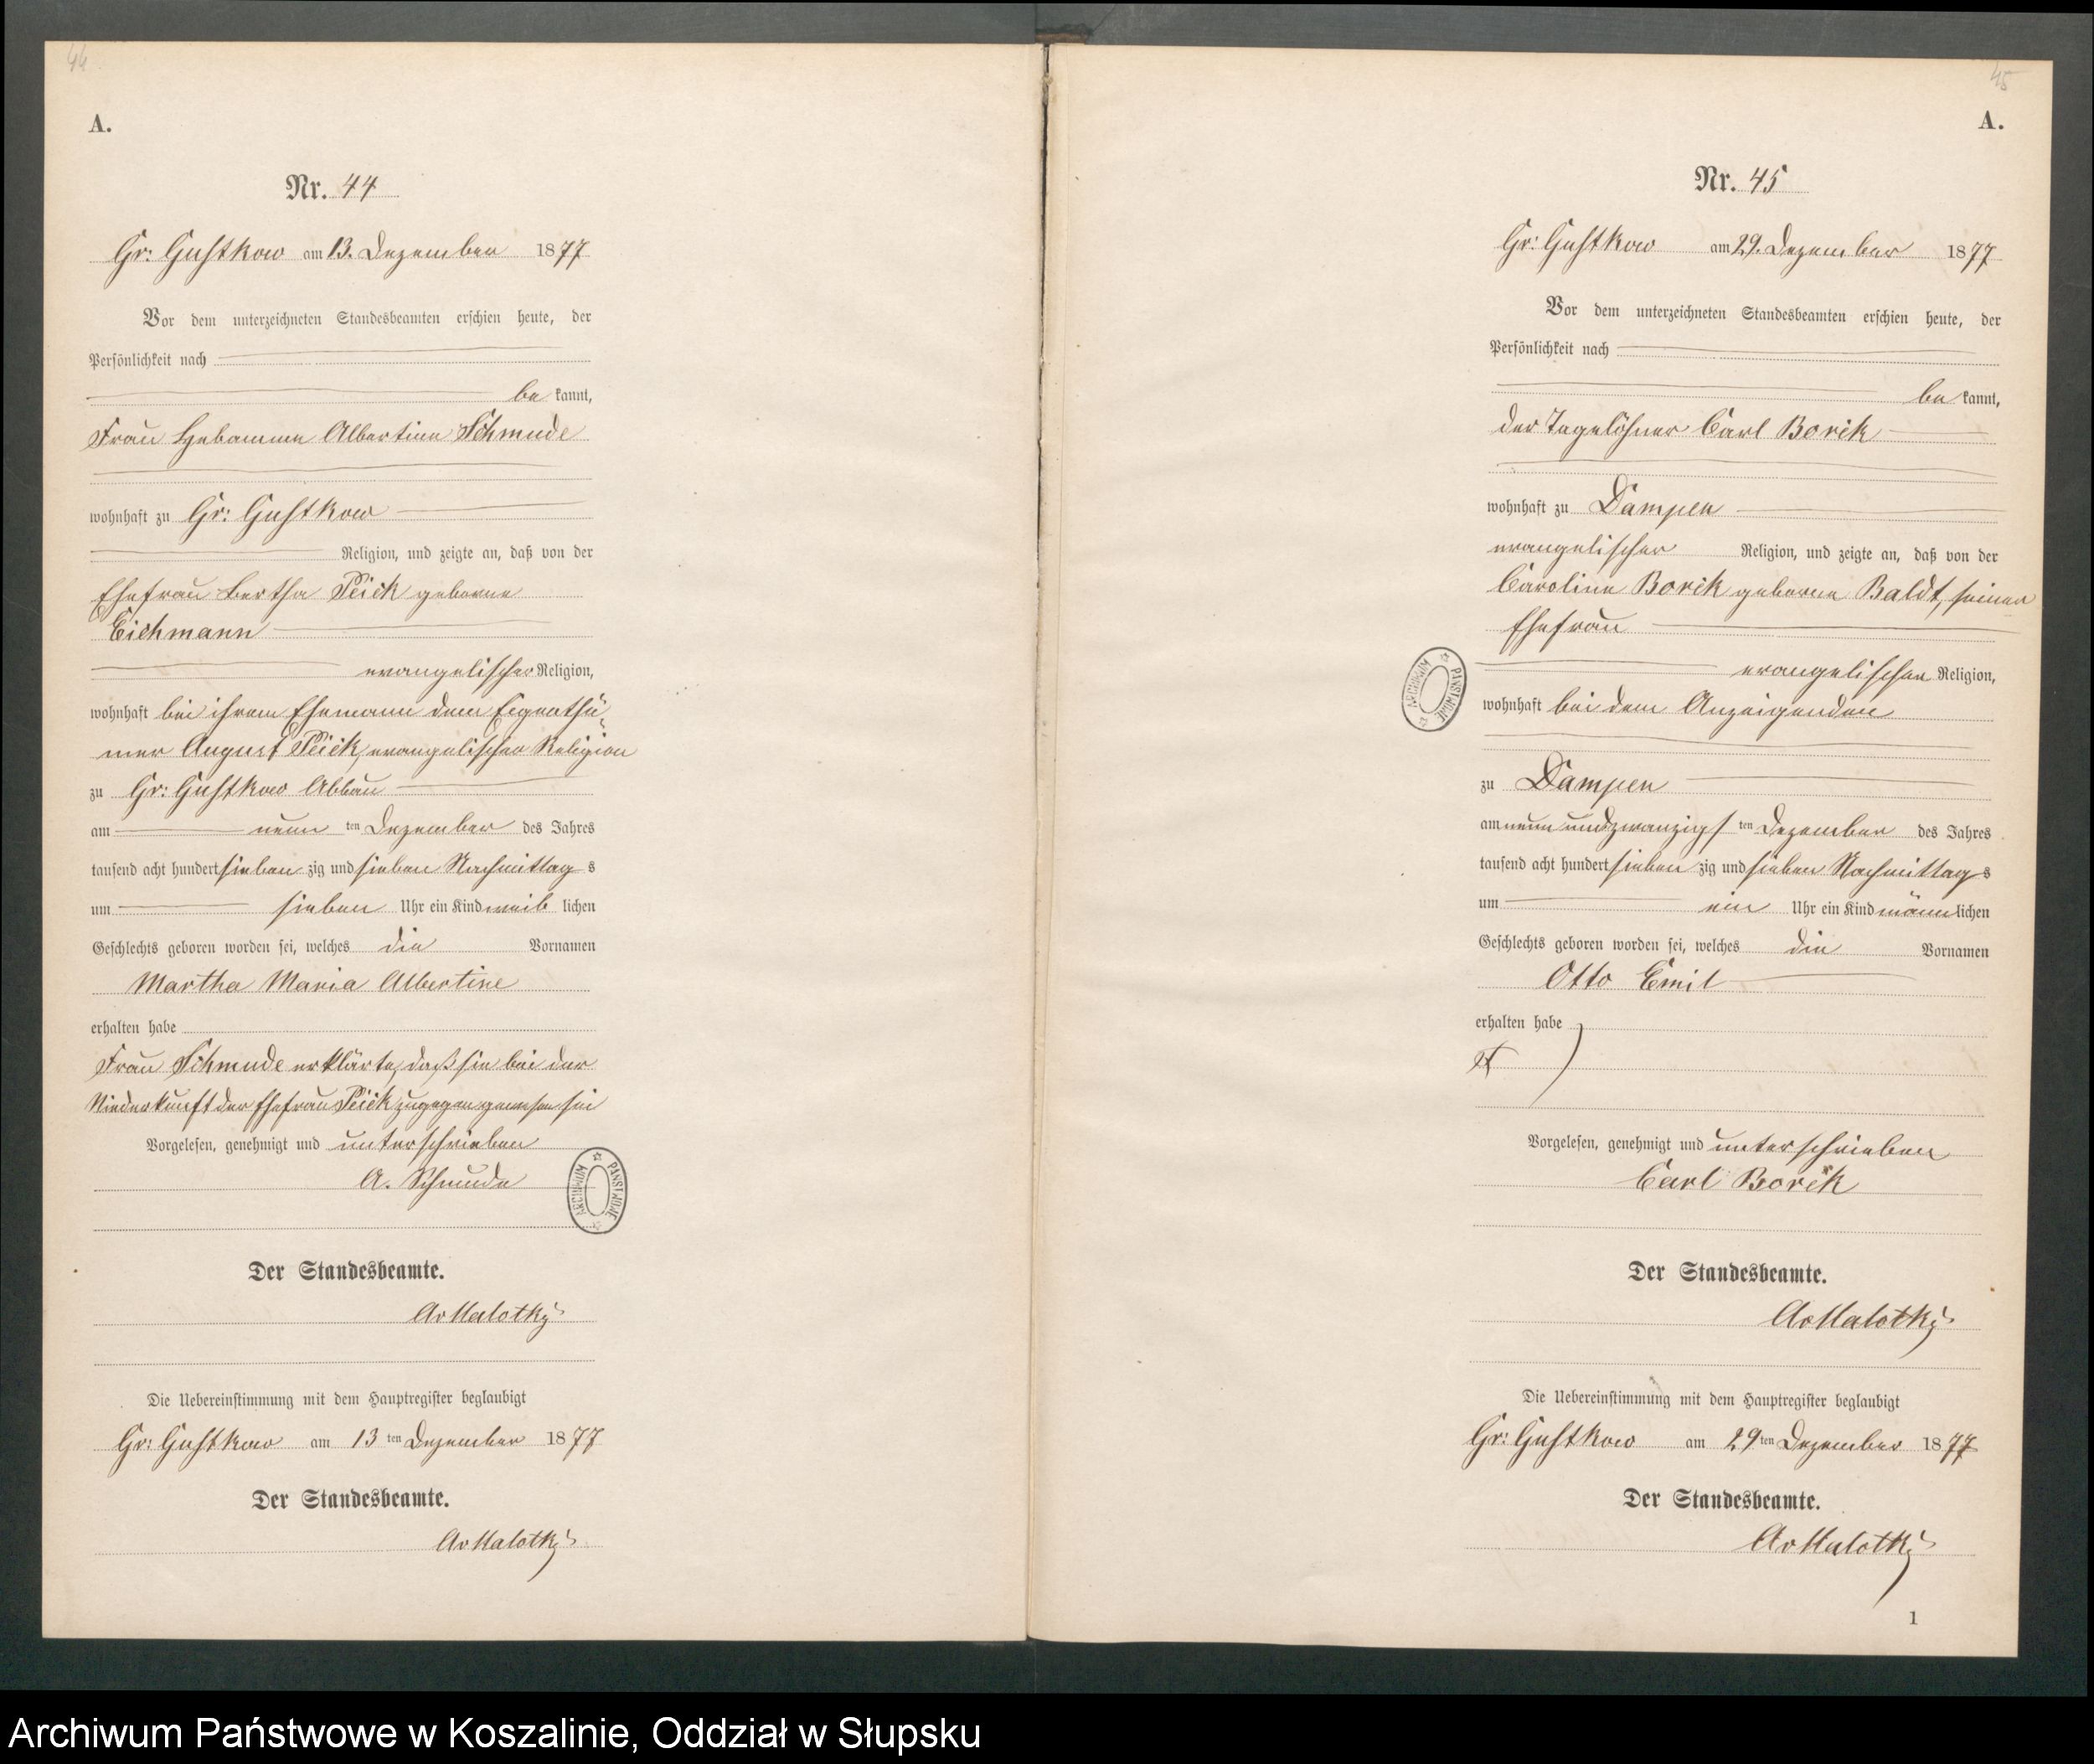 44
A.
Nr. 44
Gr: Gustkow am 13. Dezember 1877
Vor dem unterzeichneten Standesbeamten erschien heute, der
Persönlichkeit nach
be kannt,
Frau Hebamme Albertine Schmude
wohnhaft zu Gr: Gustkow
Religion, und zeigte an, daß von der
Ehefrau Bertha Peick geborne
Eichmann
evangelischer Religion,
wohnhaft bei ihrem Ehemann dem Eigenthü-
mer August Peick, evangelischer Religion
zu Gr: Gustkow Abbau
am neun ten Dezember des Jahres
tausend acht hundert sieben zig und sieben Nachmittag s
um sieben Uhr ein Kind weib lichen
Geschlechts geboren worden sei, welches die Vornamen
Martha Maria Albertine
erhalten habe
Frau Schmude erklärte, daß sie bei der
Niederkunft der Ehefrau Peick zugegen gewesen sei
Vorgelesen, genehmigt und unterschrieben
A. Schmude
ARCHIWUM PAŃSTWOWE
Der Standesbeamte.
AvMalotky
Die Uebereinstimmung mit dem Hauptregister beglaubigt
Gr: Gustkow am 13 ten Dezember 1877
Der Standesbeamte.
AvMalotky
45
A.
Nr. 45
Gr: Gustkow am 29. Dezember 1877
Vor dem unterzeichneten Standesbeamten erschien heute, der
Persönlichkeit nach
be kannt,
der Tagelöhner Carl Borck
wohnhaft zu Dampen
evangelischer Religion, und zeigte an, daß von der
Caroline Borck geborne Baldt, seiner
Ehefrau
evangelischer Religion,
ARCHIWUM PAŃSTWOWE
wohnhaft bei dem Anzeigenden
zu Dampen
am neun und zwanzigs ten Dezember des Jahres
tausend acht hundert sieben zig und sieben Nachmittag s
um ein Uhr ein Kind männ lichen
Geschlechts geboren worden sei, welches die Vornamen
Otto Emil
erhalten habe
Vorgelesen, genehmigt und unterschrieben
Carl Borck
Der Standesbeamte.
AvMalotky
Die Uebereinstimmung mit dem Hauptregister beglaubigt
Gr: Gustkow am 29 ten Dezember 1877
Der Standesbeamte.
AvMalotky
1
Archiwum Państwowe w Koszalinie, Oddział w Słupsku